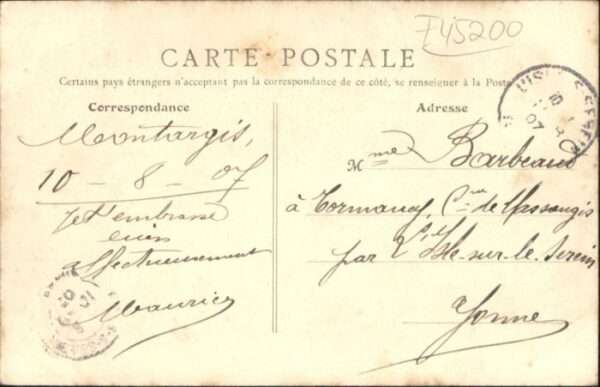 F45200
CARTE POSTALE
Certains pays étrangers n'acceptant pas la correspondance de ce côté, se renseigner à la Poste
Correspondance
Adresse
Montargis,
10 - 8 - 07
Je t'embrasse
bien
affectueusement
Maurice
Mme Barbeaud
à Tormancy, Cne de Massangis
par L'Isle-sur-le-Serein
Yonne